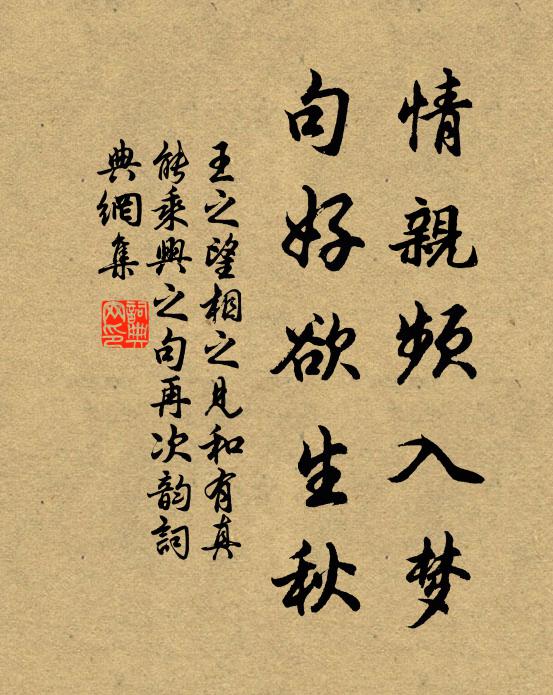 情親頻入梦
句好欲生秋
王之望相之見和有真
能乘興之句再次韵詞
典網集
詞典
网印